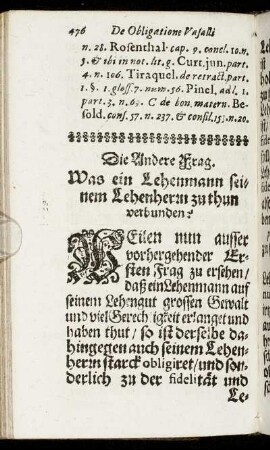 476 De Obligatione Vasalli
n. 28. Rosenthal. cap. 9. concl. 10. n.
5. & ibi in not. lit. g. Curt. jun. part.
4. n. 106. Tiraquel. de retract. part.
1. §. 1. gloss. 7. num. 56. Pinel. ad l. 1.
part. 3. n. 69. C de bon. matern. Be-
sold. cons. 57. n. 237. & consil. 151. n. 20.
Die Andere Frag.
Was ein Lehenmann sei-
nem Lehenherrn zu thun
verbunden?
WEilen nun ausser
vorhergehender Er-
sten Frag zu ersehen/
daß ein Lehenmann auf
seinem Lehengut grossen Gewalt
und viel Gerechtigkeit erlanget und
haben thut/ so ist derselbe da-
hingegen auch seinem Lehen-
herrn starck obligiret/ und son-
derlich zu der fidelität und
Le-